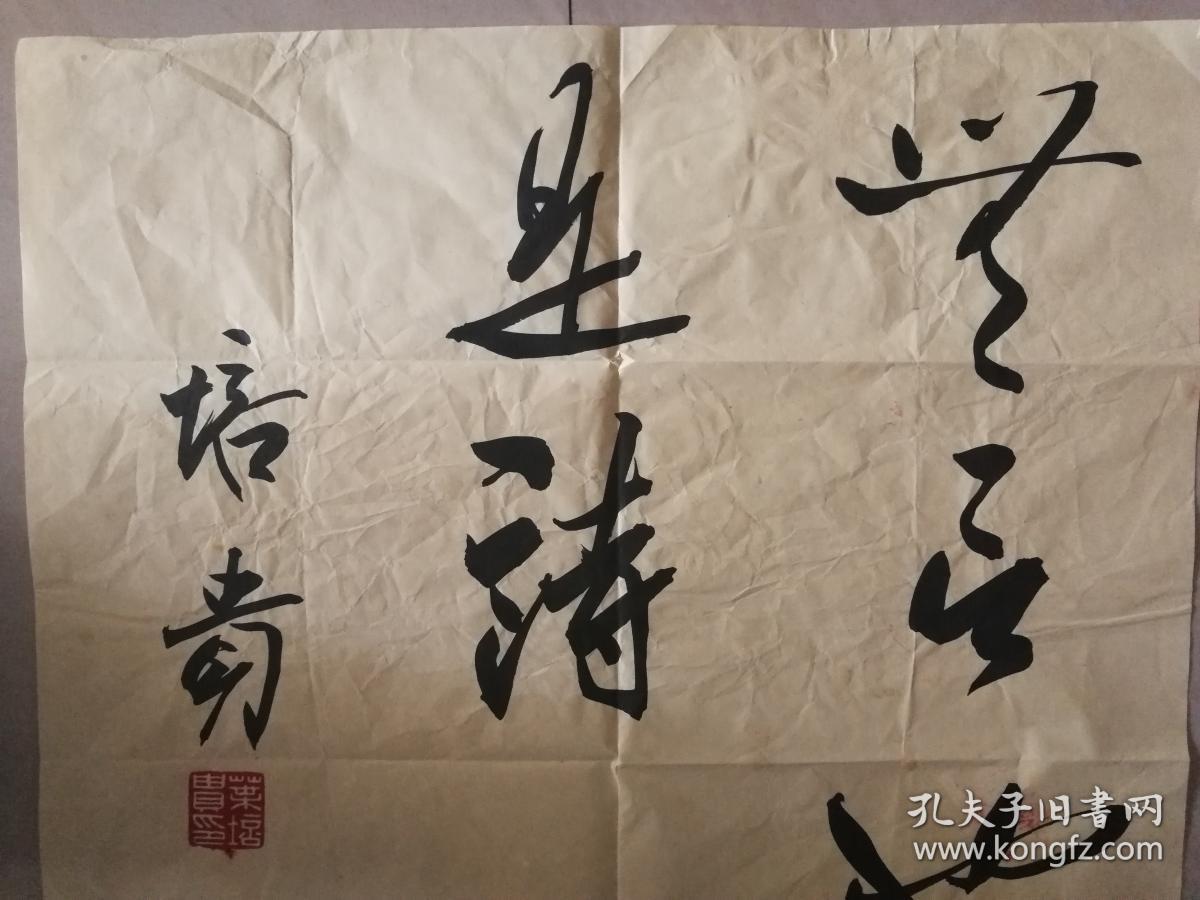 無言也
是詩
培貴
葉培貴印
孔夫子旧书网
www.kongfz.com